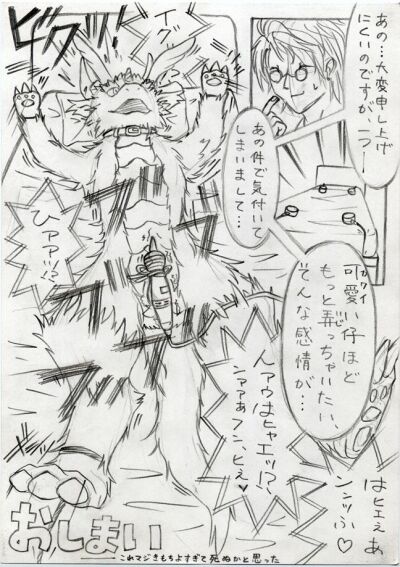 あの…大変申し上げ
にくいのですが、一つ…
あの件で気付いて
しまいまして…
可愛い仔ほど
カワイイ
もっと弄っちゃいたい、
そんな感情が…
ビグクッ
イグ
ひァァッ!?
ブブブブブブ
んアゥはヒャエッ!?、
ンアァぁフン、ヒぇ♥
はヒェぇあ
ンンッふ♡
おしまい
これマジきもちよすぎて死ぬかと思った